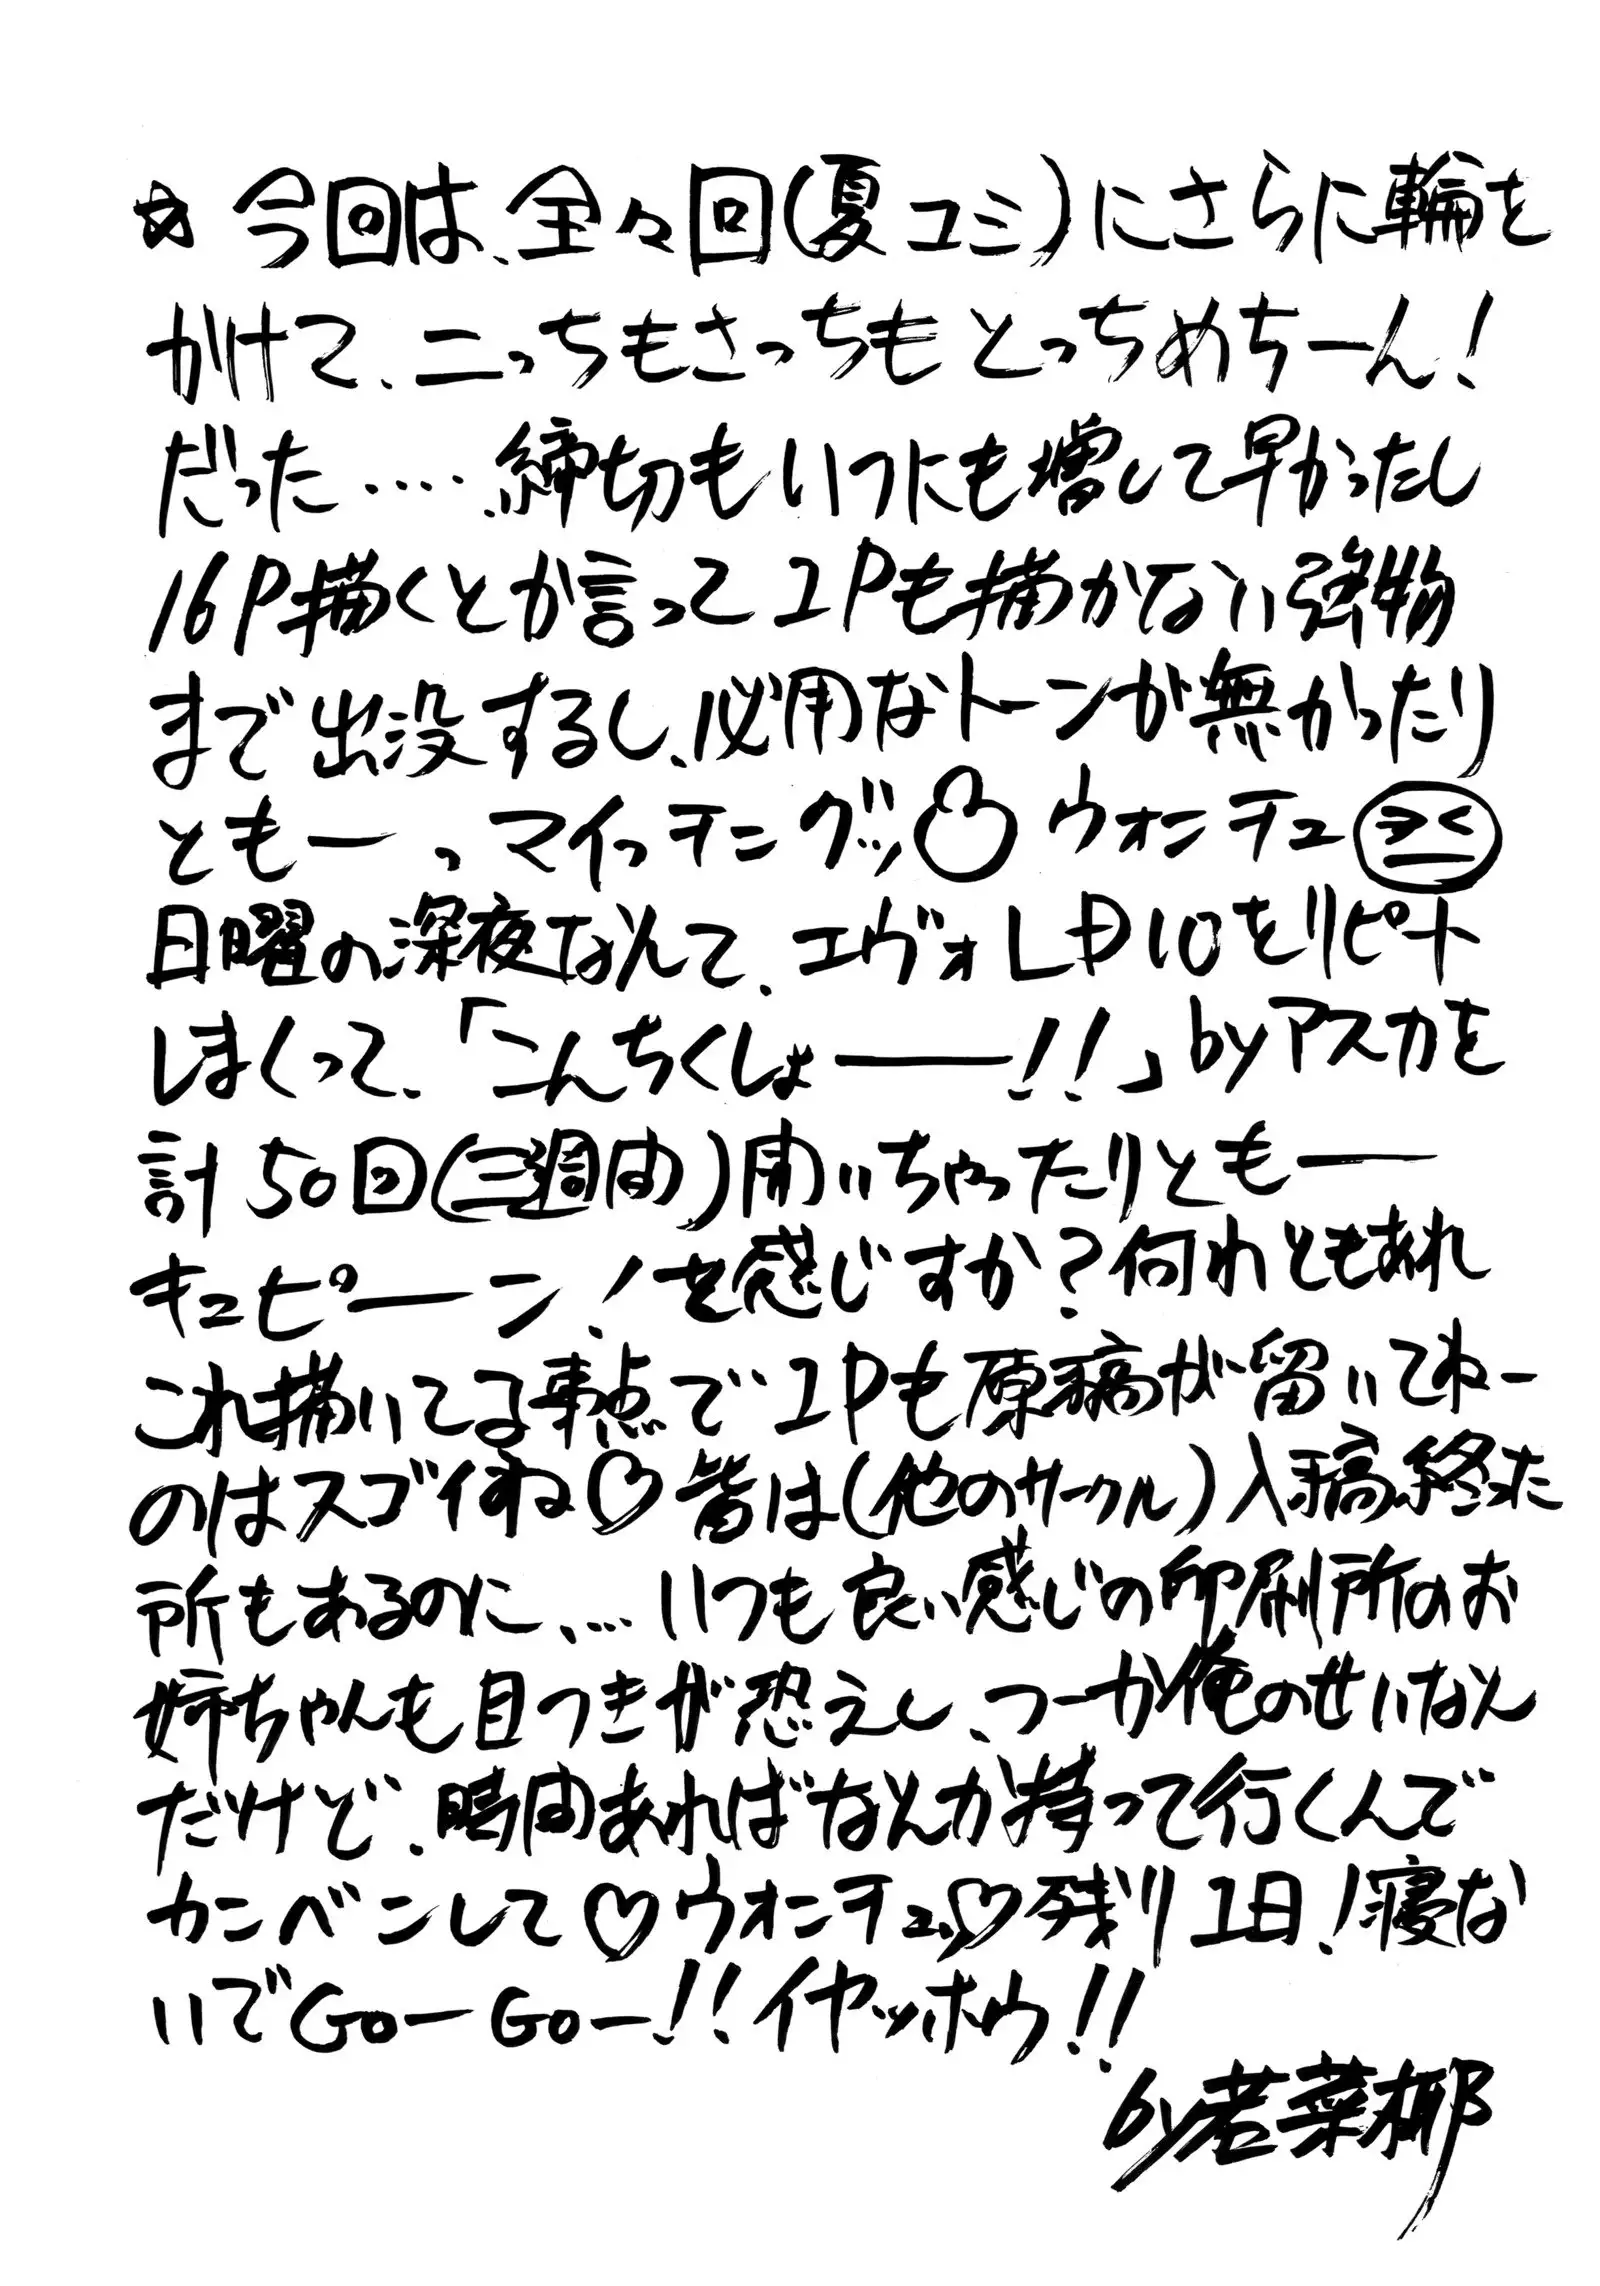 ☆今回は、全々回(夏コミ)にさらに輪を
かけて、ニっちもさっちもとっちめちーん!
だった‥‥‥締切もいつにも増して早かったし
16P描くとか言って1Pも描かない強物
まで出没するし、必用なトーンが無かったり
ともーっマイっチングッ ウォンチュ
日曜の深夜なんて、エヴォLD10をリピート
しまくって、「こんちくしょー!!」byアスカを
計50回(三週間)聞いちゃったりともー
キュピーン!を感じすか?何れともあれ
これ描いてる事点で1Pも原稿が留いてねー
のはスゴイすね♡皆は(他のサークル)入稿終えた
所もあるのに、‥‥いつも良い感じの印刷所のお
姉ちゃんも目つきが恐えし、つーか俺のせいなん
だけど、時間あればなんか持って行くんで
カンベンして♡ウォンチュ♡残り1日!寝な
いでGoーGoー!!イヤッホウ!!
by若菜椰